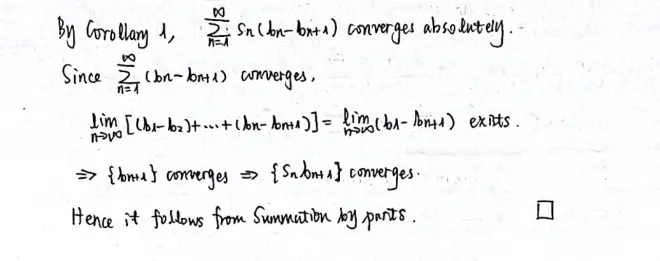 By Corollary 1, ∞∑n=1 Sn(bn-bn+1) converges absolutely.
Since ∞∑n=1 (bn-bn+1) converges,
lim n→∞ [(b1-b2)+...+(bn-bn+1)] = lim n→∞ (b1-bn+1) exists.
⇒ {bn+1} converges ⇒ {Snbn+1} converges.
Hence it follows from Summation by parts. □